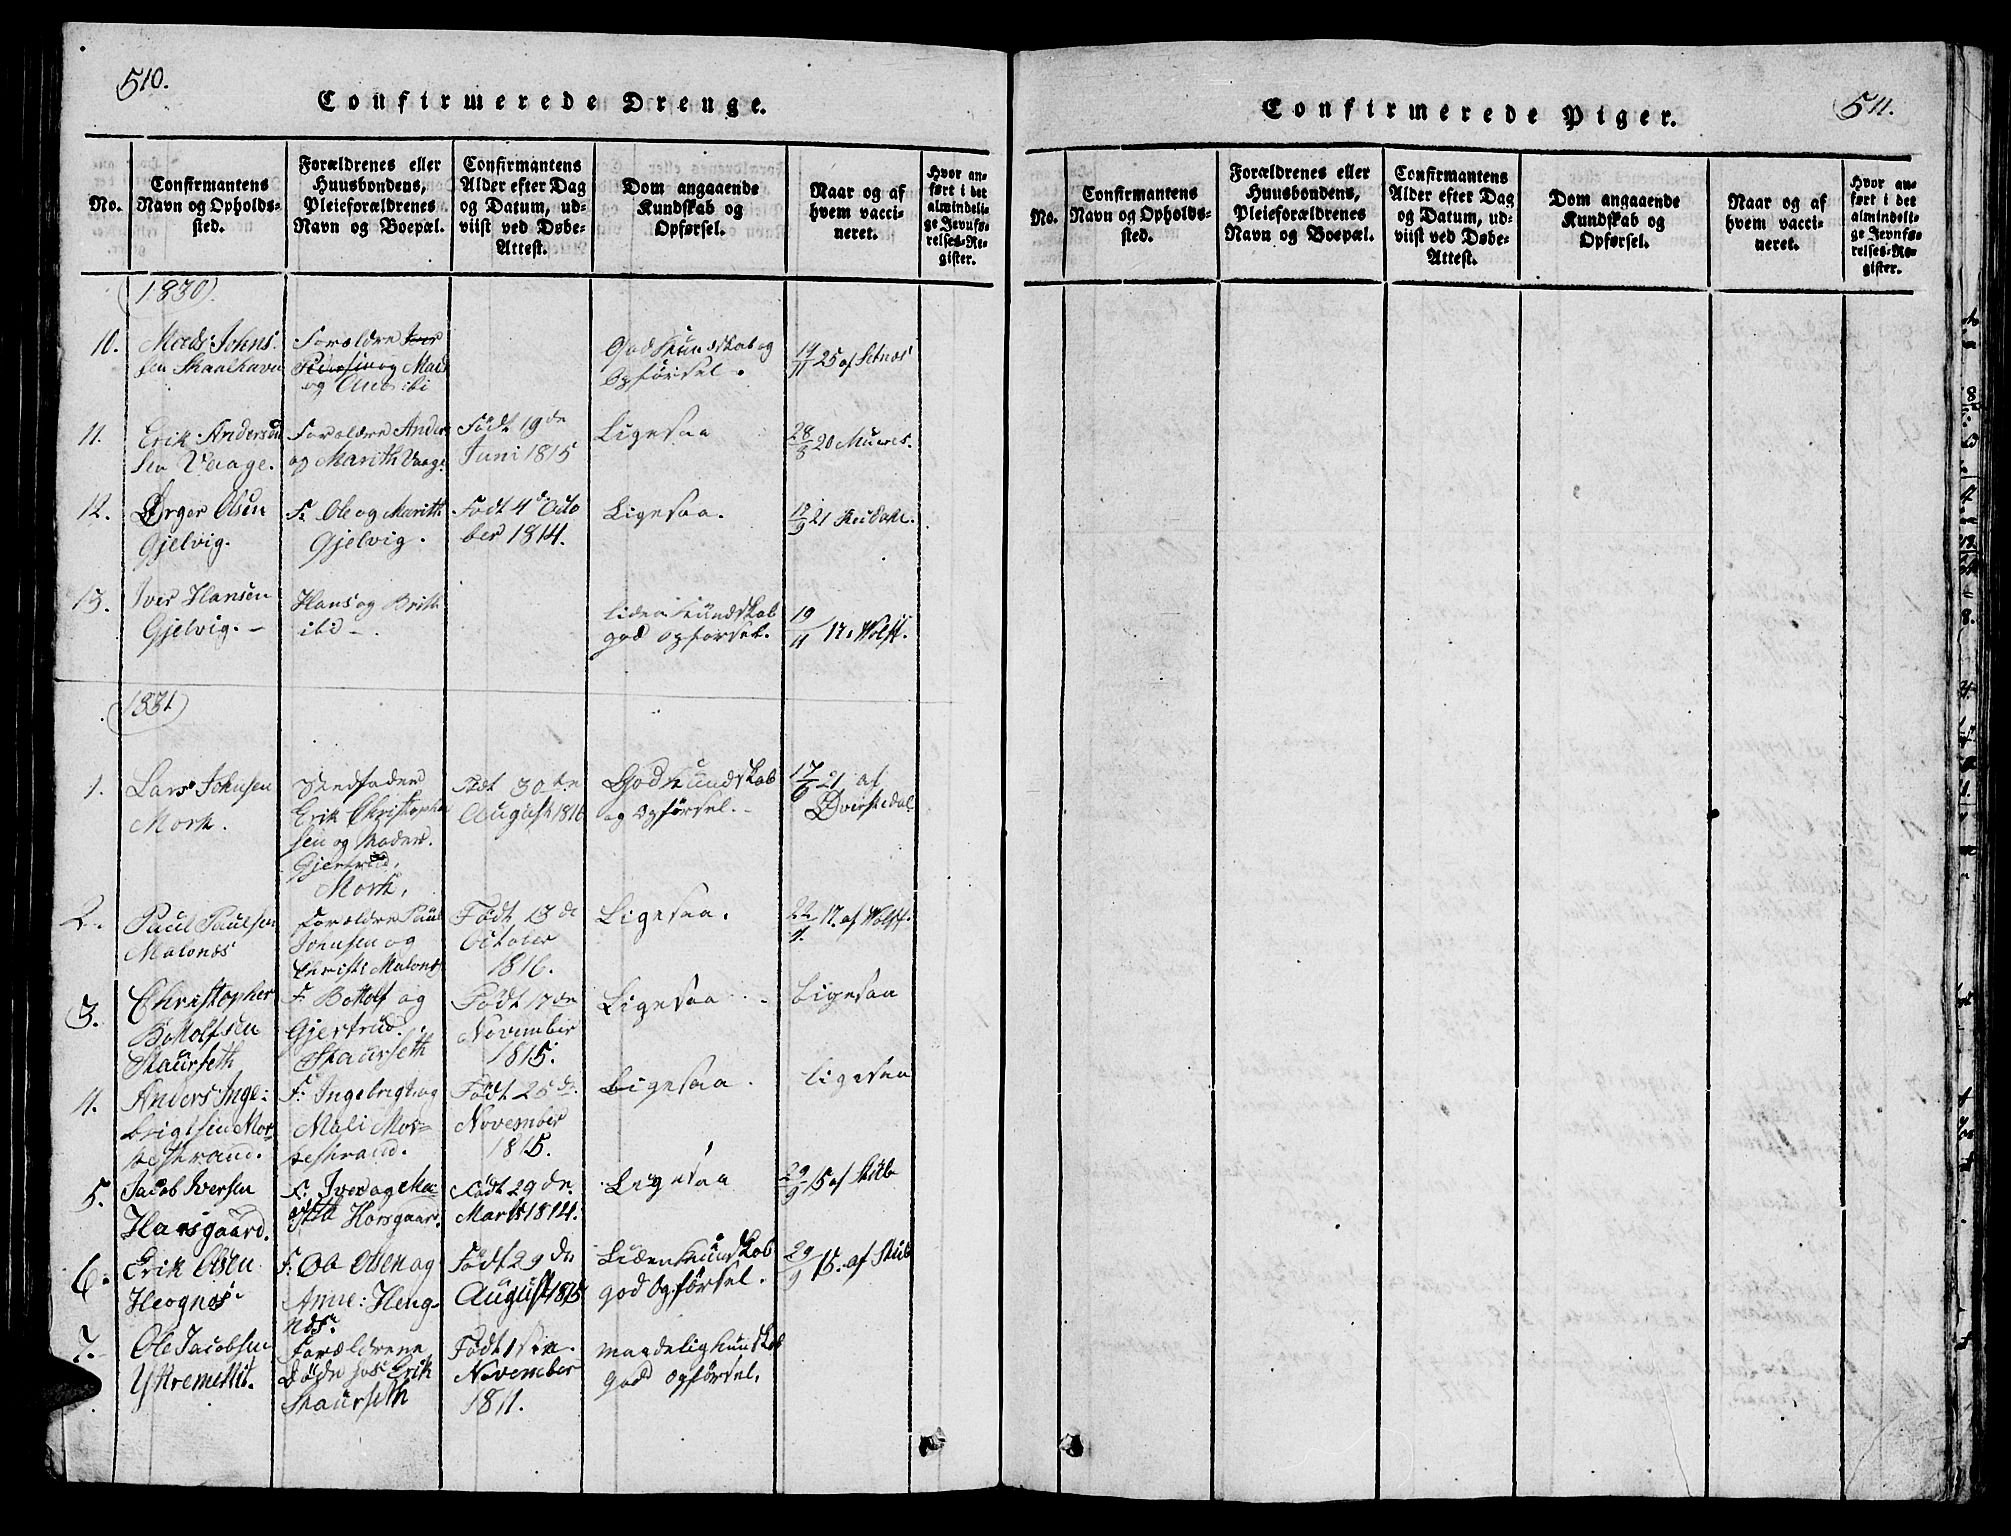 510.
Confirmerede Drenge.
No.
Confirmantens
Navn og Opholds-
sted.
Forældrenes eller
Huusbondens,
Pleieforældrenes
Navn og Boepæl.
Confirmantens
Alder efter Dag
og Datum, ud-
viist ved Døbe-
Attest.
Dom angaaende
Kundskab og
Opførsel.
Naar og af
hvem vacci-
neret.
Hvor an-
ført i det
almindeli-
ge Jevnfø-
relses-Re-
gister.
1830.
10.
Mads Johns
sen Skaalhavn
Forældre Iver
og Mari
God Kundskab og
Opførsel.
25 af Setnæs
11.
Erik Anders
sen Vaage.
Forældre Anders
og Marith Vaage
Født 19de
Juni 1815
Ligesaa
28/8 20
12.
Ørger Olsen
Gjelvig.
F. Ole og Marith
Gjelvig.
Født 4de Octo
ber 1814.
Ligesaa.
21
13.
Iver Hansen
Gjelvig. –
Hans og Britt
ibid –.
Liden Kundskab
god opførsel.
19/11 17. Wolff.
1831
1.
Lars Johnsen
Mork.
Stedfader
Erik Christopher
sen og Moder
Gjertrud,
Mork,
Født 30te
August 1816
God Kundskab
og Opførsel –
17/6 21 af
Øverstedal
2.
Paul Paulsen
Malonæs
Forældre Paul
Joensen og
Christi Malones
Født 13de
October
1816.
Ligesaa.
22/4. 17. af Wolff.
3.
Christopher
Bottolfsen
Skaurseth
F. Bottolf og
Gjertrud
Skaurseth
Født 17de
November
1815.
Ligesaa
Ligesaa
4.
Anders Inge-
brigtsen Mor-
sestrand.
F. Ingebrigt og
Mali Mor-
sestrand.
Født 25de
November
1815.
Ligesaa.
Ligesaa
5.
Jacob Iversen
Harsgaard.
F. Iver og Ma-
Horsgaard.
Født 29de
Marts 1814.
Ligesaa
29/9 15 af Stub
6.
Erik Olsen
Heognæs
F. Ole Olsen og
Anne Heng-
næs.
Født 29de
August 1815
Liden Kundskab
god Opførsel.
29/9 15. af Stub
7.
Ole Jacobsen
Yttremelit.
Forældrene
døde hos Erik
Skaurseth
Født 1ste
November
1811.
maadelig kundskab
god opførsel,
511.
Confirmerede Piger.
No.
Confirmantens
Navn og Opholds-
sted.
Forældrenes eller
Huusbondens,
Pleieforældrenes
Navn og Boepæl.
Confirmantens
Alder efter Dag
og Datum, ud-
viist ved Døbe-
Attest.
Dom angaaende
Kundskab og
Opførsel.
Naar og af
hvem vacci-
neret.
Hvor an-
ført i det
almindeli-
ge Jevnfø-
relses-Re-
gister.